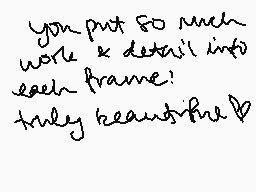 you put so much
work & detail into
each frame!
truly beautiful ♡